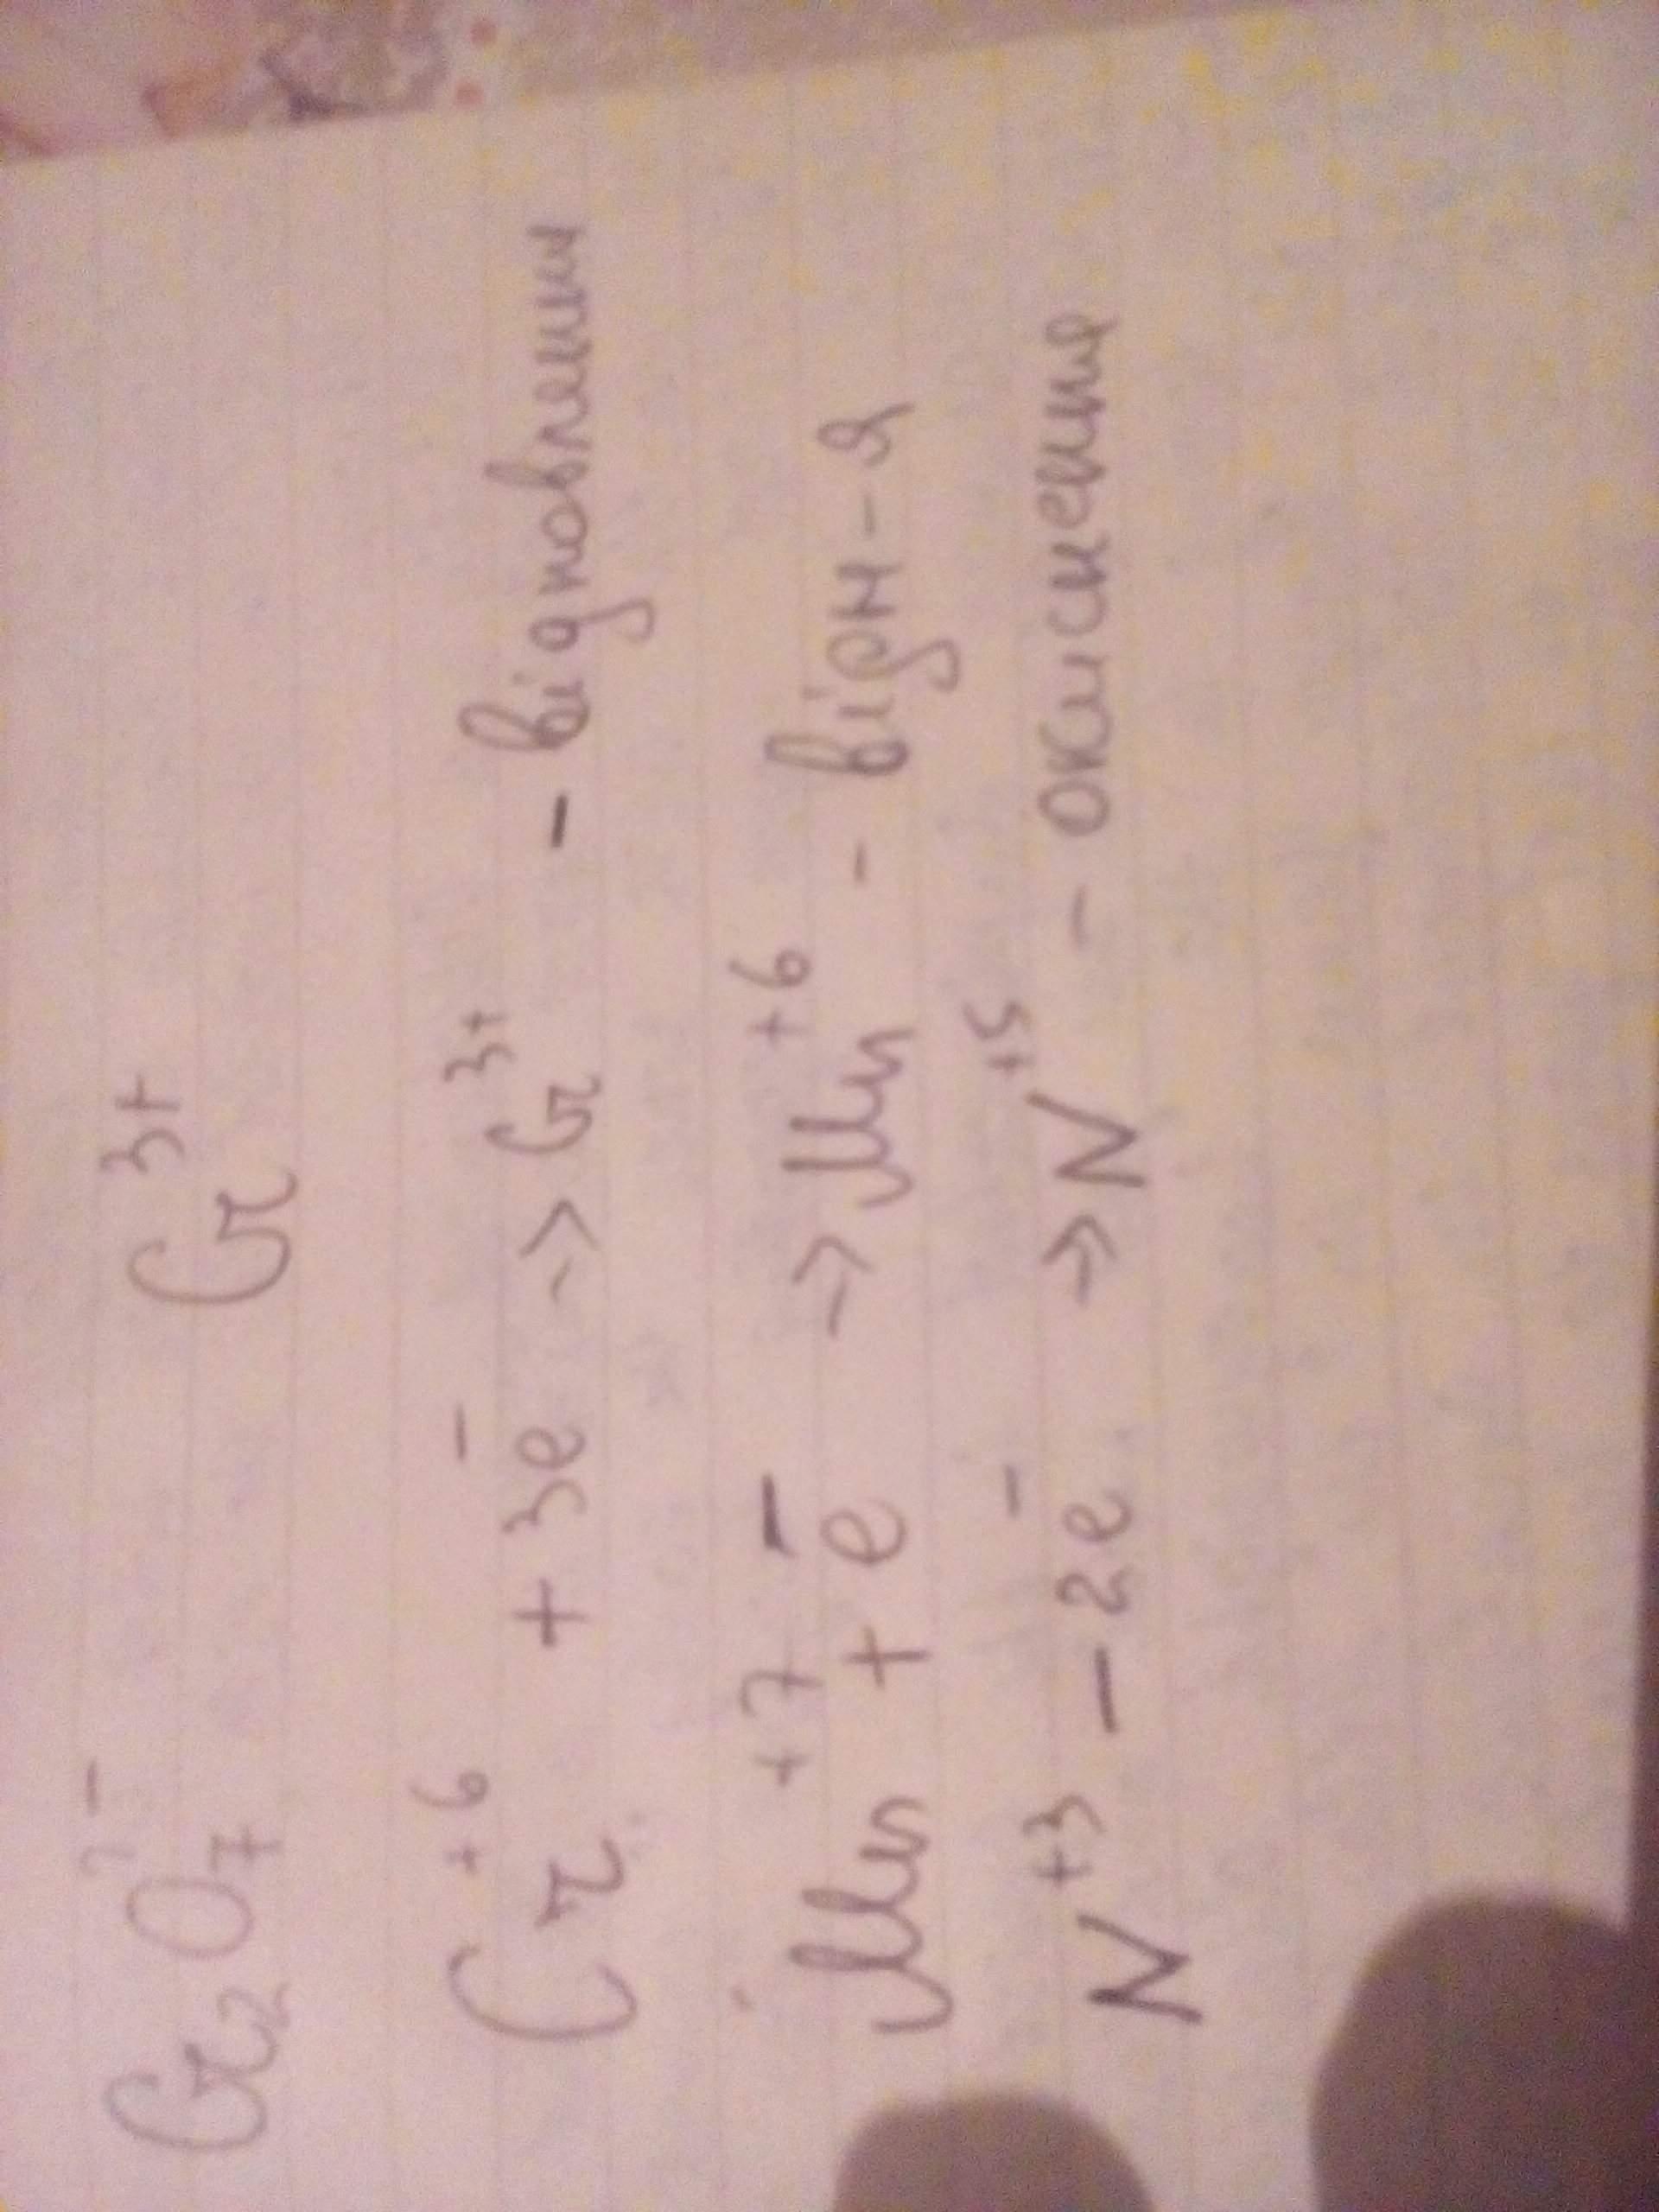 Cr₂O₇²⁻ Cr³⁺
Cr⁺⁶ + 3e⁻ -> Cr³⁺ - відновленн
Mn⁺⁷ + e⁻ -> Mn⁺⁶ - відн-я
N⁺³ - 2e⁻ -> N⁺⁵ - окиснення